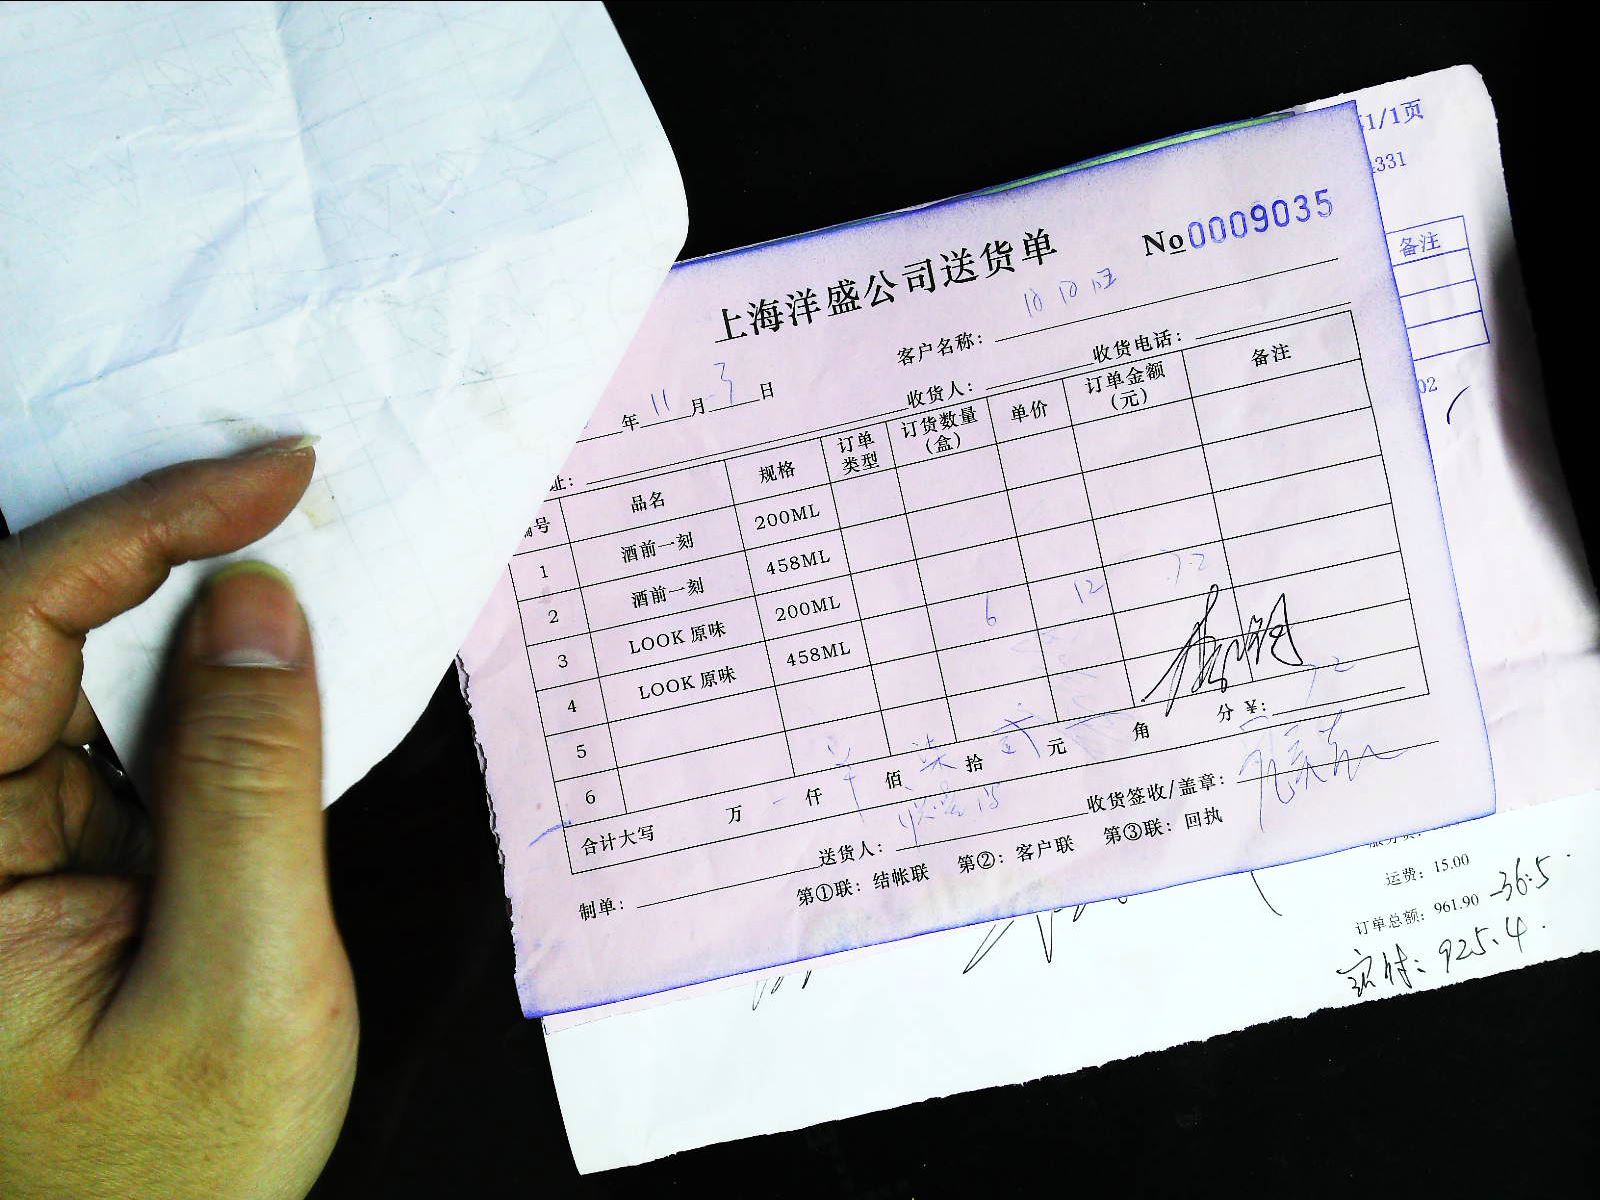 1/1页
331
备注
上海洋盛公司送货单 No0009035
客户名称：
年 11 月 3 日 收货人： 收货电话：
址：
编号 品名 规格 订单类型 订货数量(盒) 单价 订单金额(元) 备注
1 酒前一刻 200ML
2 酒前一刻 458ML
3 LOOK 原味 200ML 6 12 72
4 LOOK 原味 458ML
5
6
合计大写 万 仟 佰 柒 拾 贰 元 角 分 ¥: 72
制单： 送货人： 收货签收/盖章：
第①联：结帐联 第②：客户联 第③联：回执
02
运费：15.00
订单总额：961.90 -36.5
实付：925.4